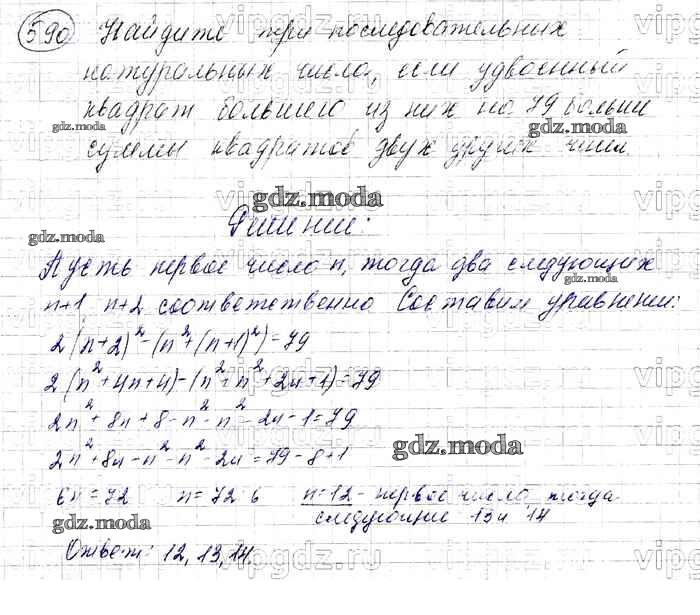 590 Найдите три последовательных
натуральных числа, если удвоенный
квадрат большего из них на 79 больше
суммы квадратов двух других чисел.
Решение:
Пусть первое число n, тогда два следующих
n+1, n+2 соответственно Составим уравнение:
2(n+2)²-(n²+(n+1)²)=79
2(n²+4n+4)-(n²+n²+2n+1)=79
2n²+8n+8-n²-n²-2n-1=79
2n²+8n-n²-n²-2n=79-8+1
6n=72 n=72:6 n=12 - первое число, тогда
следующие 13 и 14
Ответ: 12, 13, 14.
gdz.moda
gdz.moda
gdz.moda
gdz.moda
gdz.moda
gdz.moda
gdz.moda
gdz.moda
vipgdz.ru